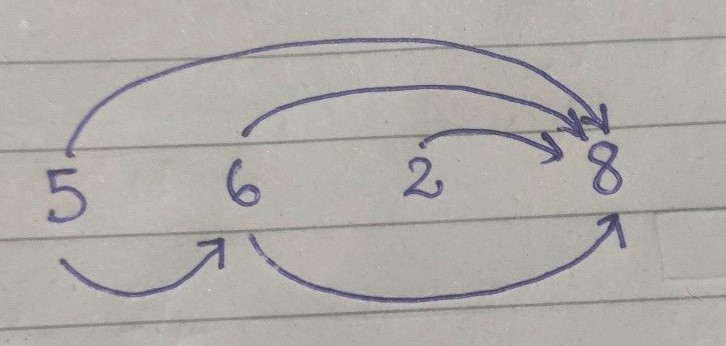 5 6 2 8